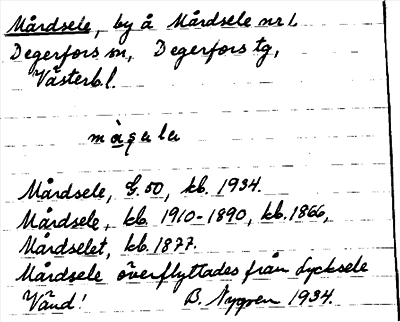 Mårdsele, by å Mårdsele nr 1,
Degerfors sn, Degerfors tg,
Västerb. l.
Mårdsele, G. 50, kb. 1934.
Mårdsele, kb. 1910-1890, kb. 1866,
Mårdselet, kb. 1877.
Mårdsele överflyttades från Lycksele
Vänd! B. Nygren 1934.